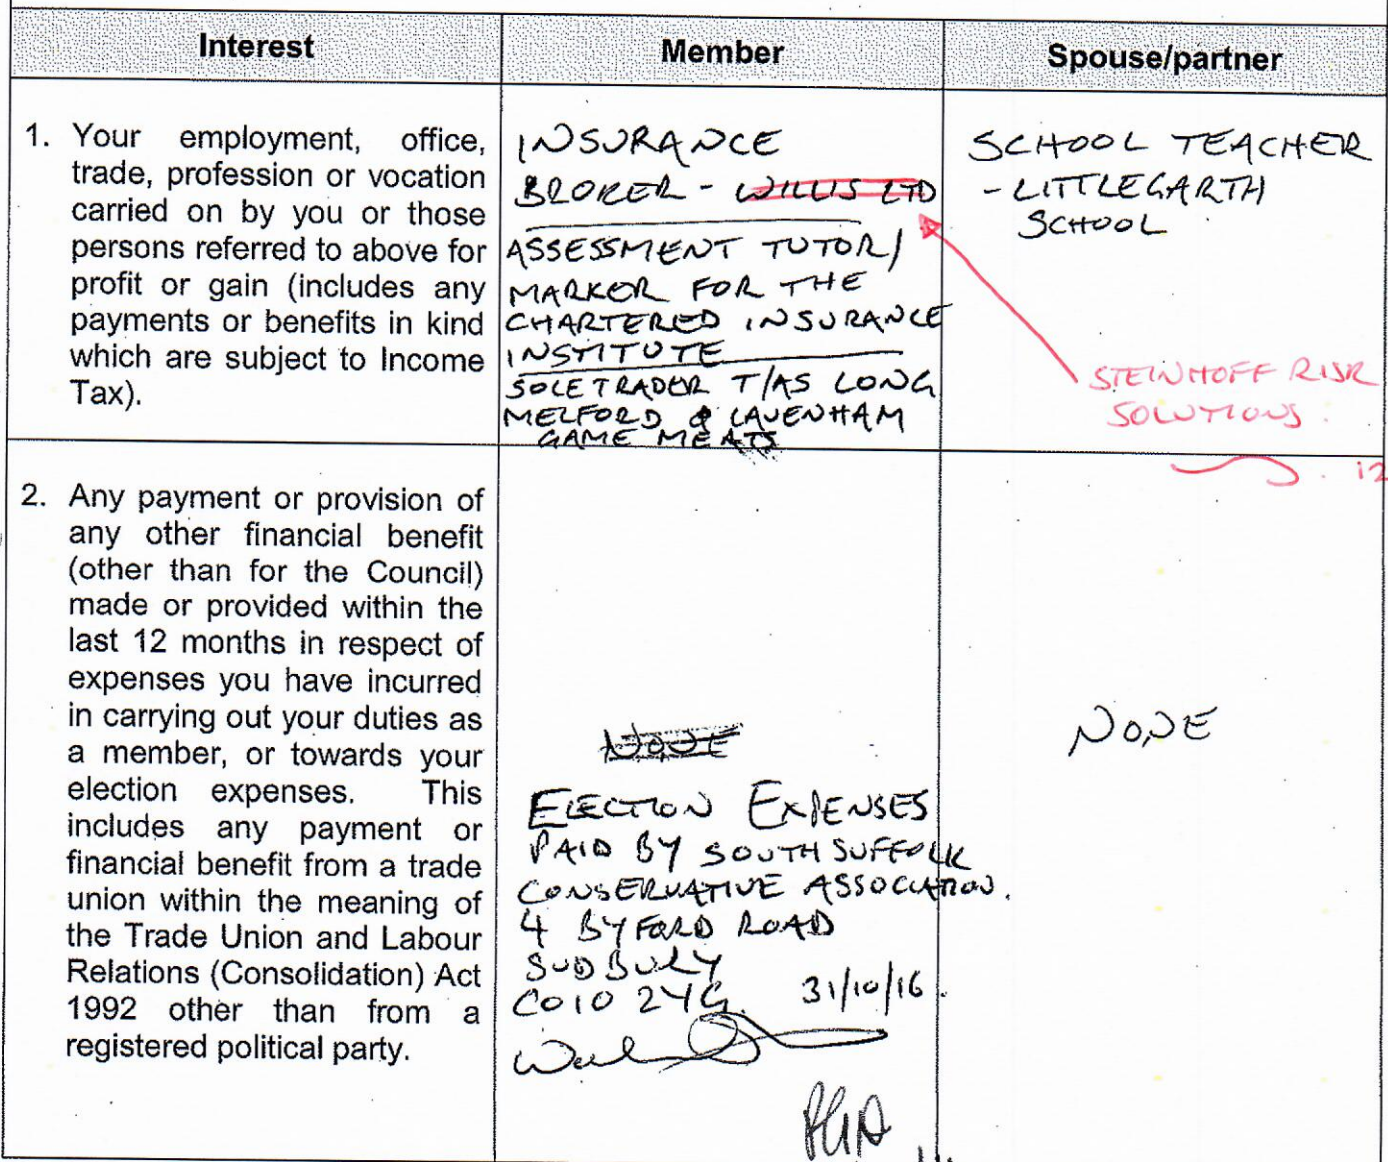 Interest
Member
Spouse/partner
1. Your employment, office,
trade, profession or vocation
carried on by you or those
persons referred to above for
profit or gain (includes any
payments or benefits in kind
which are subject to Income
Tax).
INSURANCE
BROKER - WILLIS LTD
ASSESSMENT TUTOR/
MARKER FOR THE
CHARTERED INSURANCE
INSTITUTE
SOLE TRADER T/AS LONG
MELFORD & LAVENHAM
GAME MEATS
SCHOOL TEACHER
- LITTLEGARTH
SCHOOL
STEINHOFF RISK
SOLUTIONS.
2. Any payment or provision of
any other financial benefit
(other than for the Council)
made or provided within the
last 12 months in respect of
expenses you have incurred
in carrying out your duties as
a member, or towards your
election expenses. This
includes any payment or
financial benefit from a trade
union within the meaning of
the Trade Union and Labour
Relations (Consolidation) Act
1992 other than from a
registered political party.
NONE
ELECTION EXPENSES
PAID BY SOUTH SUFFOLK
CONSERVATIVE ASSOCIATION.
4 BYFORD ROAD
SUDBURY
CO10 2YG 31/10/16.
NONE